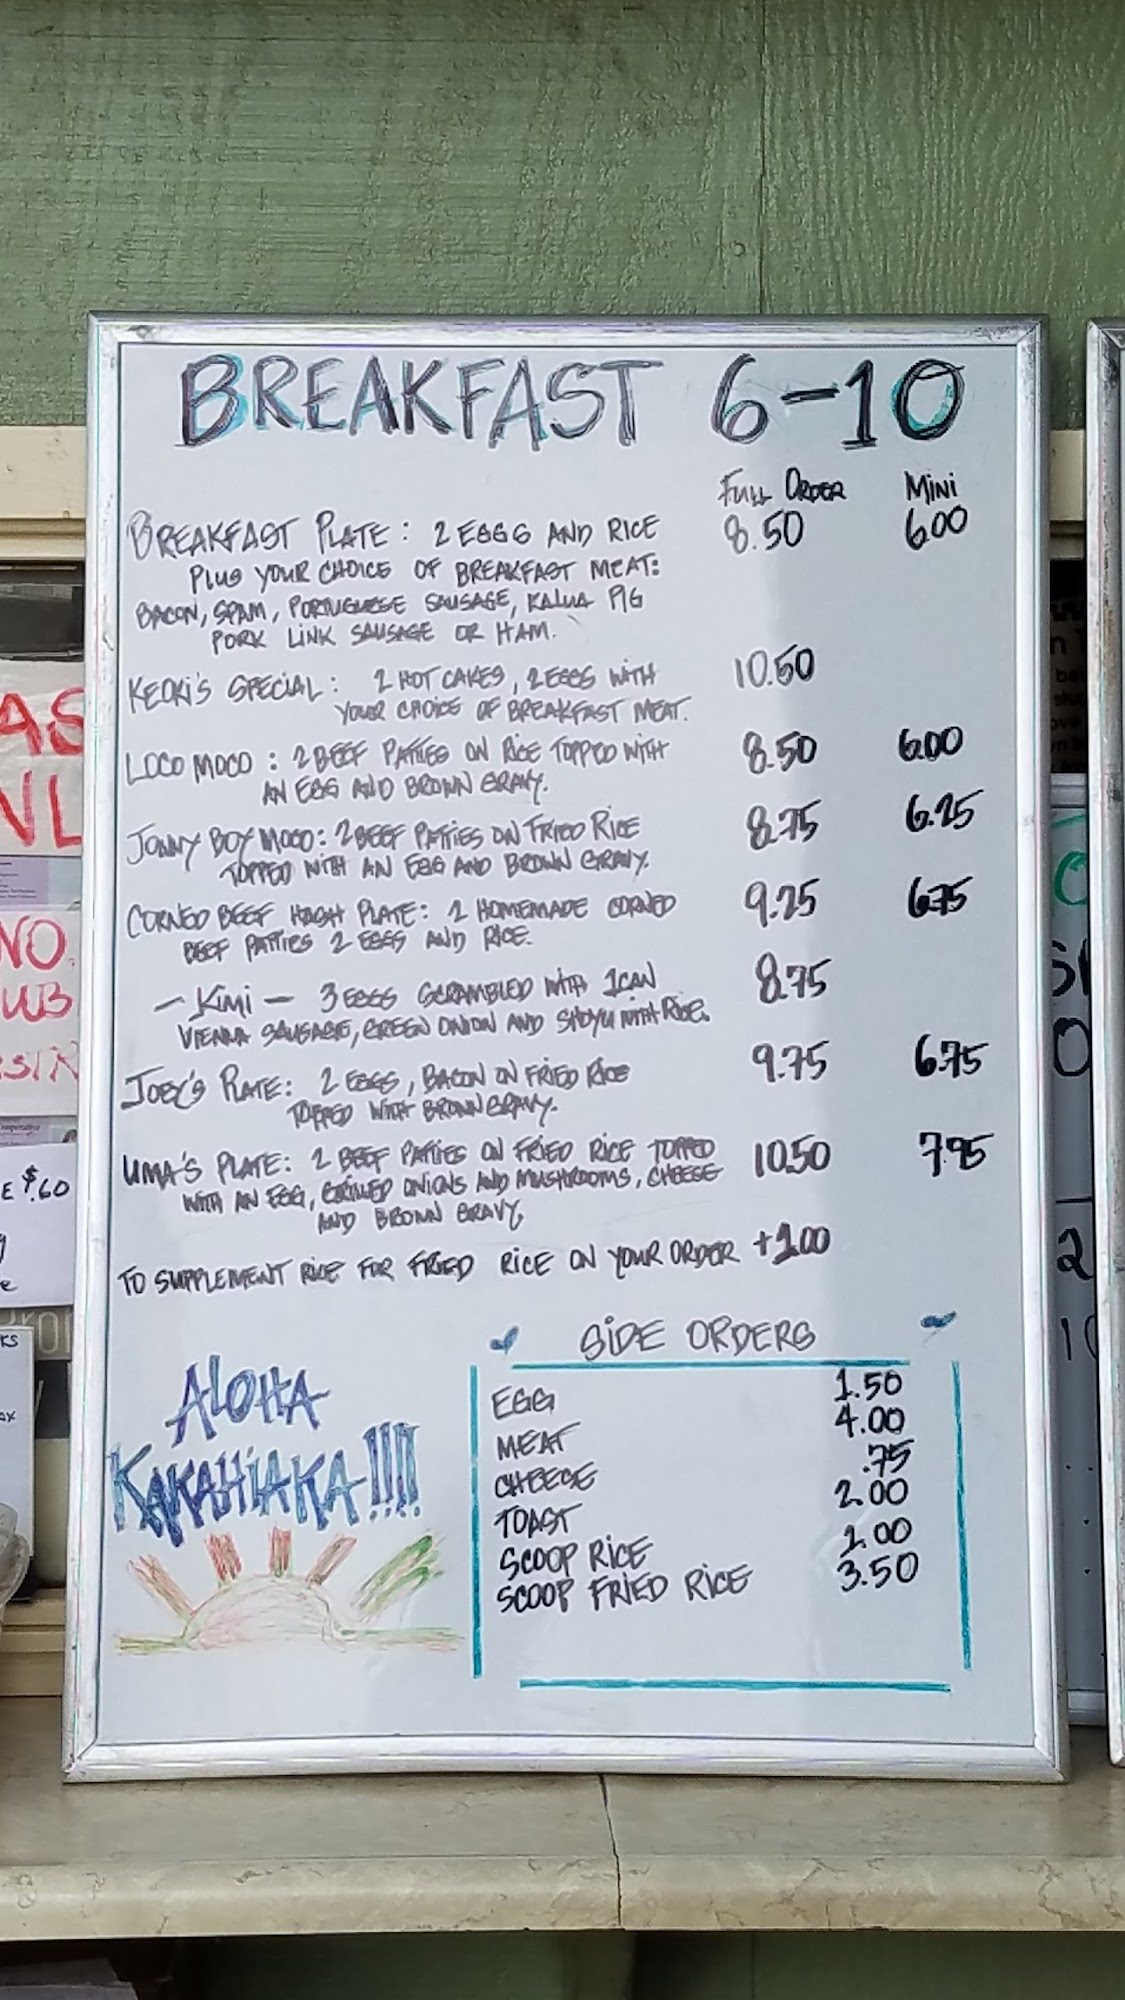 BREAKFAST 6-10
FULL ORDER MINI
BREAKFAST PLATE: 2 EGGS AND RICE 8.50 6.00
PLUS YOUR CHOICE OF BREAKFAST MEAT:
BACON, SPAM, PORTUGUESE SAUSAGE, KALUA PIG
PORK LINK SAUSAGE OR HAM.
KEOKI'S SPECIAL: 2 HOT CAKES, 2 EGGS WITH 10.50
YOUR CHOICE OF BREAKFAST MEAT.
LOCO MOCO: 2 BEEF PATTIES ON RICE TOPPED WITH 8.50 6.00
AN EGG AND BROWN GRAVY.
JONNY BOY MOCO: 2 BEEF PATTIES ON FRIED RICE 8.75 6.25
TOPPED WITH AN EGG AND BROWN GRAVY.
CORNED BEEF HASH PLATE: 2 HOMEMADE CORNED 9.25 6.75
BEEF PATTIES 2 EGGS AND RICE.
- KIMI - 3 EGGS SCRAMBLED WITH 1 CAN 8.75
VIENNA SAUSAGE, GREEN ONION AND SHOYU WITH RICE.
JOEY'S PLATE: 2 EGGS, BACON ON FRIED RICE 9.75 6.75
TOPPED WITH BROWN GRAVY.
UMA'S PLATE: 2 BEEF PATTIES ON FRIED RICE TOPPED 10.50
WITH AN EGG, GRILLED ONIONS AND MUSHROOMS, CHEESE
AND BROWN GRAVY,
TO SUPPLEMENT RICE FOR FRIED RICE ON YOUR ORDER +1.00
ALOHA
KAKAHIAKA!!!!
SIDE ORDERS
EGG 1.50
MEAT 4.00
CHEESE .75
TOAST 2.00
SCOOP RICE
SCOOP FRIED RICE 3.50
NO
E $.60